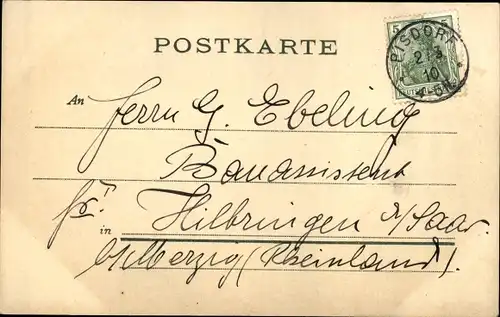 POSTKARTE
5
PISDORF
2 3
10
An Herrn G. Ebeling
Bauassistent
fr.
in Hilbringen a/Saar
b/Merzig (Rheinland).